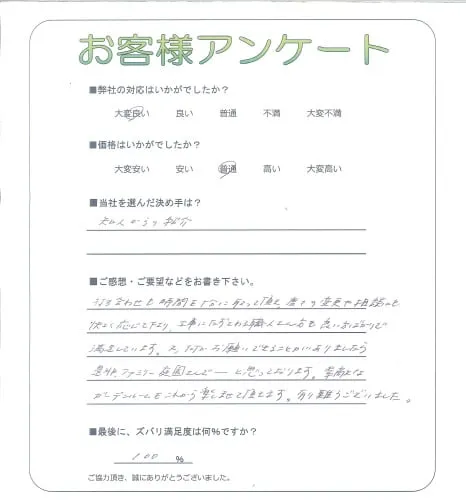 お客様アンケート
■弊社の対応はいかがでしたか？
大変良い 良い 普通 不満 大変不満
■価格はいかがでしたか？
大変安い 安い 普通 高い 大変高い
■当社を選んだ決め手は？
知人からの紹介
■ご感想・ご要望などをお書き下さい。
打ち合わせも時間をかなに取って頂き、度々の変更や相談にも
快よく応じて下さり、工事にたずさわる職人さん方も良い方ばかりで
満足しています。又、何かお願いできることがありましたら
是非、ファミリー庭園さんで― と思っております。素敵な
ガーデンルームをこれから楽しませて頂きます。有り難うございました。
■最後に、ズバリ満足度は何%ですか？
100 %
ご協力頂き、誠にありがとうございました。